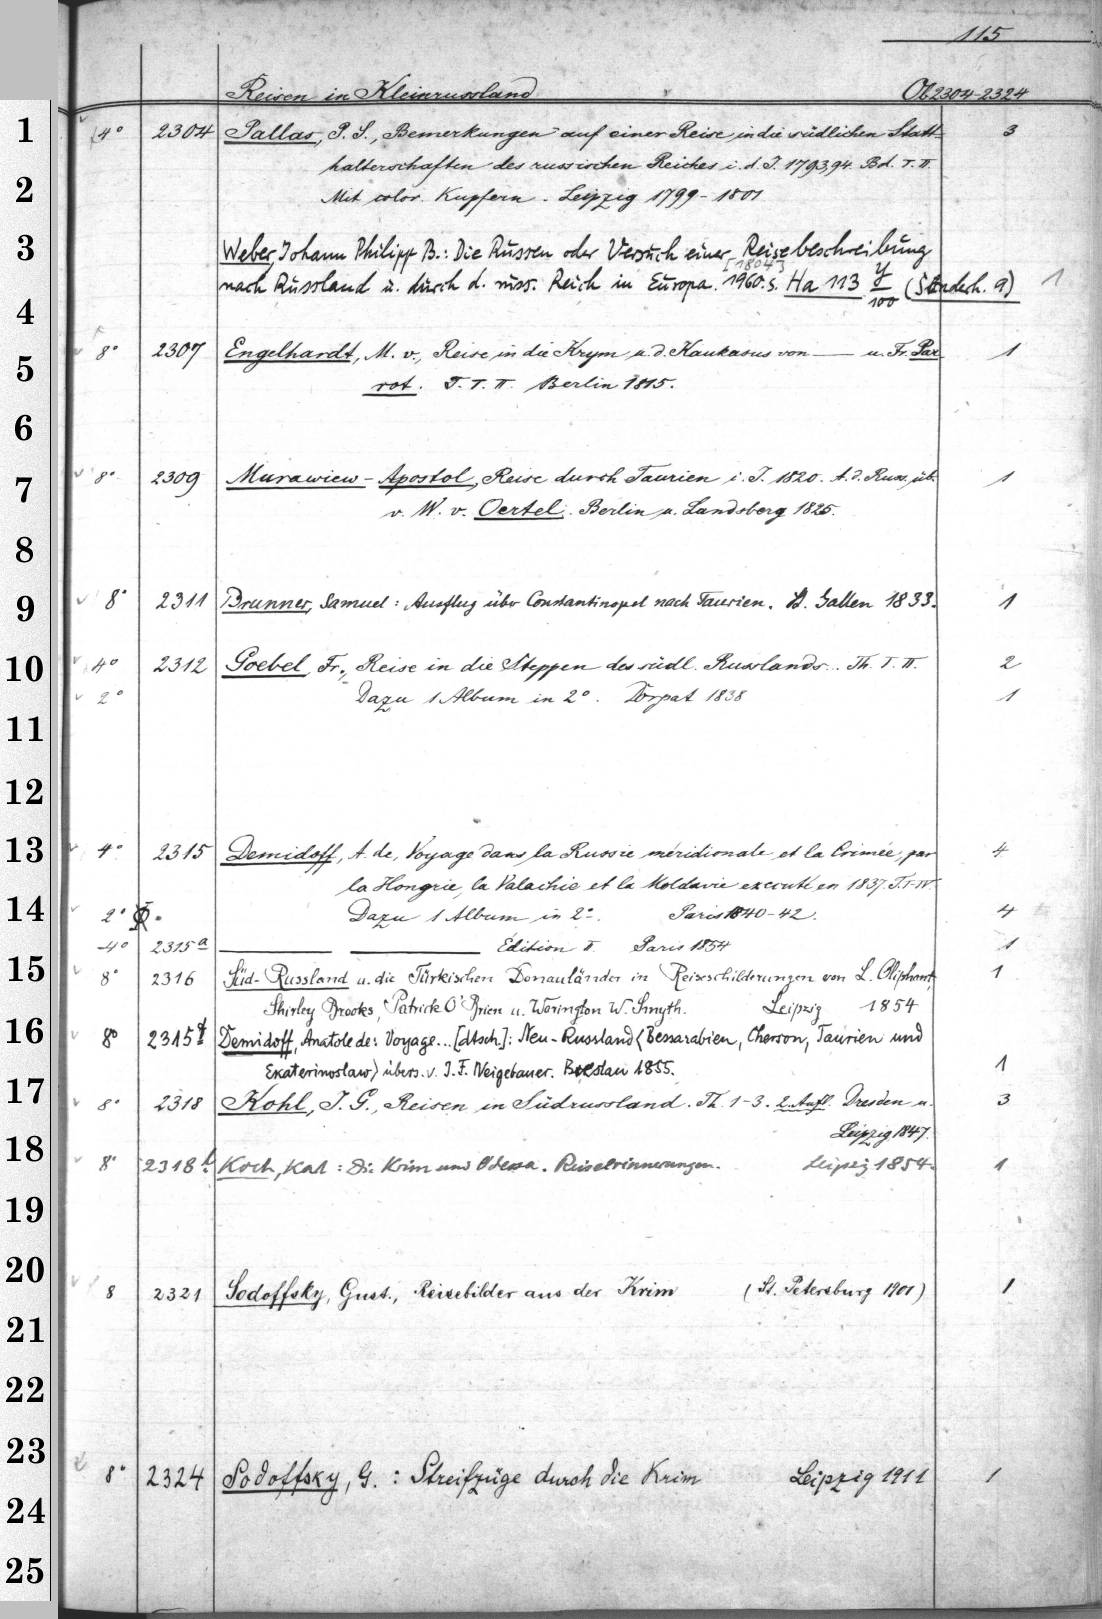 115
Reisen in Kleinrussland Ob 2304-2324
1 4° 2304 Pallas, P. S., Bemerkungen auf einer Reise in die südlichen Statt- 3
halterschaften des russischen Reiches i. d. J. 1793,94. Bd. I. II.
2 Mit color. Kupfern. Leipzig 1799-1801
3 Weber, Johann Philipp B.: Die Russen oder Versuch einer Reisebeschreibung
[1804]
nach Russland u. durch d. russ. Reich in Europa. 1960. s. Ha 113 y/100 (Sonderh. 9) 1
4
5 8° 2307 Engelhardt, M. v., Reise in die Krym u. d. Kaukasus von — u. Fr. Par- 1
rot. T. I. II. Berlin 1815.
6
7 8° 2309 Murawiew-Apostol, Reise durch Taurien i. J. 1820. A. d. Russ. üb. 1
v. W. v. Oertel. Berlin u. Landsberg 1825.
8
9 8° 2311 Brunner, Samuel: Ausflug über Constantinopel nach Taurien. St. Gallen 1833. 1
10 4° 2312 Goebel, Fr., Reise in die Steppen des südl. Russlands. Th. I. II. 2
2° Dazu 1 Album in 2°. Dorpat 1838 1
11
12
13 4° 2315 Demidoff, A. de, Voyage dans la Russie méridionale et la Crimée, par 4
la Hongrie, la Valachie et la Moldavie executé en 1837. T. I-IV.
14 2° Dazu 1 Album in 2°. Paris 1840-42. 4
4° 2315a — — Edition I. Paris 1854 1
15 8° 2316 Süd-Russland u. die Türkischen Donauländer in Reiseschilderungen von L. Oliphant, 1
Shirley Brooks, Patrick O'Brien u. Warington W. Smyth. Leipzig 1854
16 8° 2315b Demidoff, Anatole de: Voyage... [dtsch.]: Neu-Russland (Bessarabien, Cherson, Taurien und
Ekaterinoslaw) übers. v. J. F. Neigebauer. Breslau 1855. 1
17 8° 2318 Kohl, J. G., Reisen in Südrussland. Th. 1-3. 2. Aufl. Dresden u. 3
Leipzig 1847.
18 8° 2318b Koch, Karl: Die Krim und Odessa. Reiseerinnerungen. Leipzig 1854. 1
19
20 8 2321 Sodoffsky, Gust., Reisebilder aus der Krim (St. Petersburg 1901) 1
21
22
23 8° 2324 Sodoffsky, G.: Streifzüge durch die Krim Leipzig 1911 1
24
25